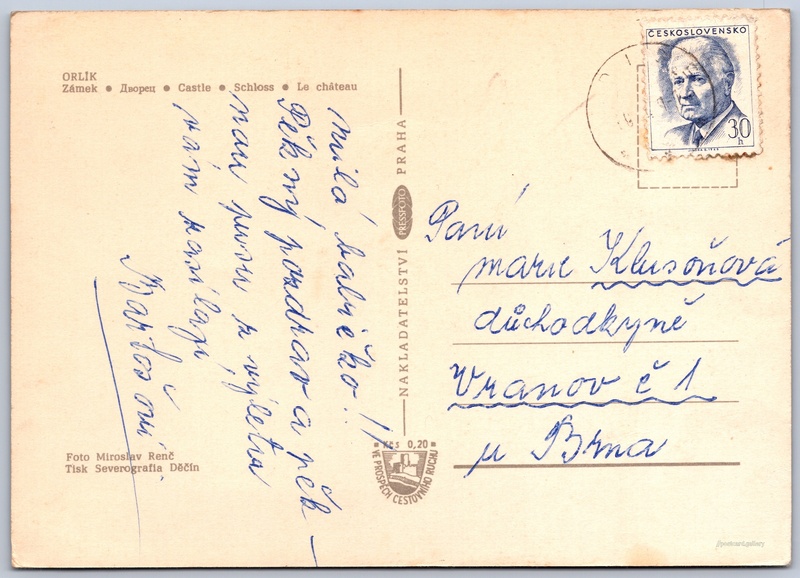 ORLÍK
Zámek • Дворец • Castle • Schloss • Le château
milá babičko!!
Pěkný pozdrav a pěk-
nou pusu z výletu
vám zasílají
Bartošovi
Foto Miroslav Renč
Tisk Severografia Děčín
NAKLADATELSTVÍ PRESSFOTO PRAHA
Kčs 0,20
VE PROSPĚCH CESTOVNÍHO RUCHU
ČESKOSLOVENSKO
30
h
Paní
marie Klusoňová
důchodkyně
Vranov č 1
u Brna